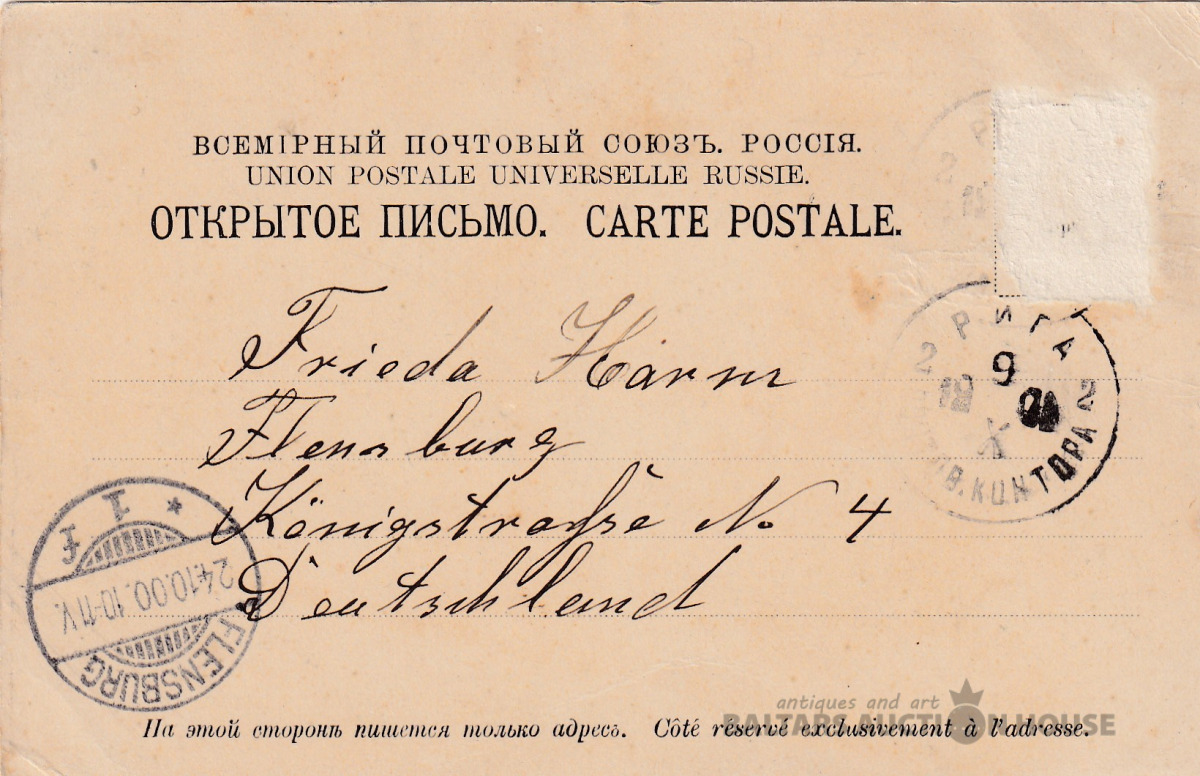 ВСЕМІРНЫЙ ПОЧТОВЫЙ СОЮЗЪ. РОССІЯ.
UNION POSTALE UNIVERSELLE RUSSIE.
ОТКРЫТОЕ ПИСЬМО. CARTE POSTALE.
Frieda Harm
Flensburg
Königstraße No 4
Deutschland
РИГА
2 9 2
X
КОНТОРА
* 1 f
24.10.00.10-11V.
FLENSBURG
На этой сторонѣ пишется только адресъ. Côté réservé exclusivement à l'adresse.
antiques and art
BALTARS AUCTION HOUSE